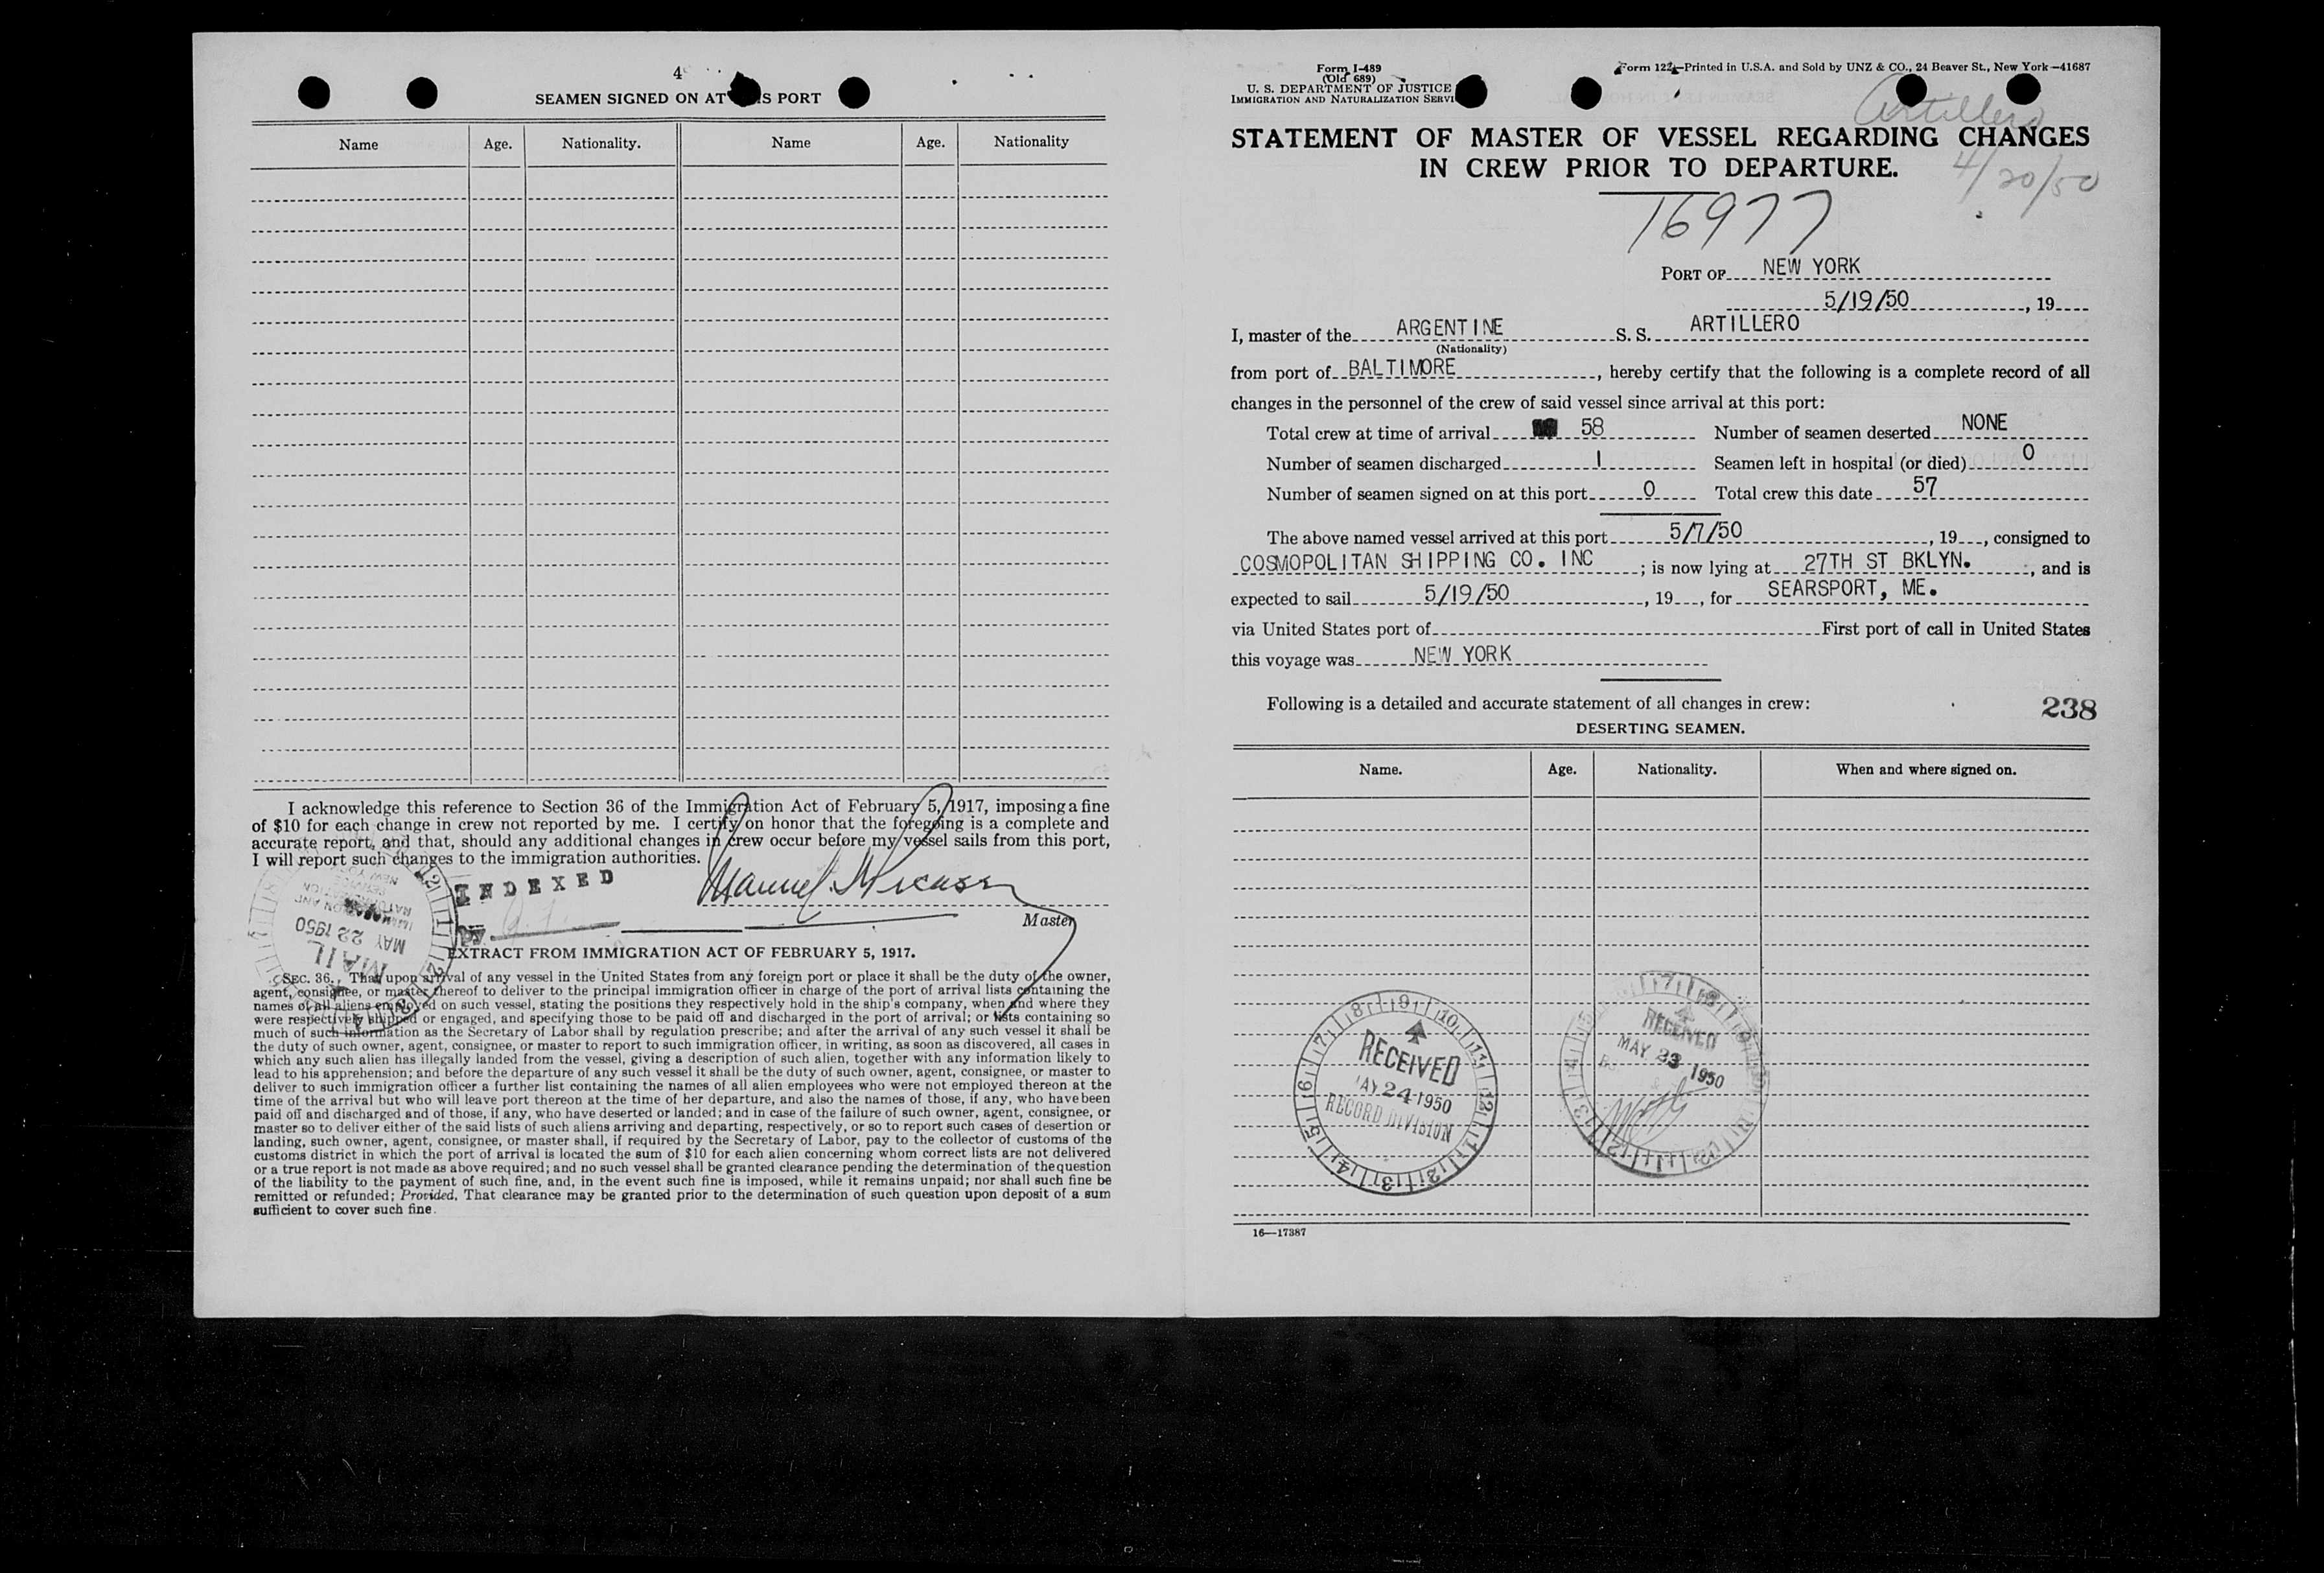 4
SEAMEN SIGNED ON AT S PORT
Name Age. Nationality. Name Age. Nationality
I acknowledge this reference to Section 36 of the Immigration Act of February 5, 1917, imposing a fine
of $10 for each change in crew not reported by me. I certify on honor that the foregoing is a complete and
accurate report, and that, should any additional changes in crew occur before my vessel sails from this port,
I will report such changes to the immigration authorities.
INDEXED
by
Manuel
Master
MAIL
MAY 22 1950
EXTRACT FROM IMMIGRATION ACT OF FEBRUARY 5, 1917.
SEC. 36. That upon arrival of any vessel in the United States from any foreign port or place it shall be the duty of the owner,
agent, consignee, or master thereof to deliver to the principal immigration officer in charge of the port of arrival lists containing the
names of all aliens employed on such vessel, stating the positions they respectively hold in the ship's company, when and where they
were respectively shipped or engaged, and specifying those to be paid off and discharged in the port of arrival; or lists containing so
much of such information as the Secretary of Labor shall by regulation prescribe; and after the arrival of any such vessel it shall be
the duty of such owner, agent, consignee, or master to report to such immigration officer, in writing, as soon as discovered, all cases in
which any such alien has illegally landed from the vessel, giving a description of such alien, together with any information likely to
lead to his apprehension; and before the departure of any such vessel it shall be the duty of such owner, agent, consignee, or master to
deliver to such immigration officer a further list containing the names of all alien employees who were not employed thereon at the
time of the arrival but who will leave port thereon at the time of her departure, and also the names of those, if any, who have been
paid off and discharged and of those, if any, who have deserted or landed; and in case of the failure of such owner, agent, consignee, or
master so to deliver either of the said lists of such aliens arriving and departing, respectively, or so to report such cases of desertion or
landing, such owner, agent, consignee, or master shall, if required by the Secretary of Labor, pay to the collector of customs of the
customs district in which the port of arrival is located the sum of $10 for each alien concerning whom correct lists are not delivered
or a true report is not made as above required; and no such vessel shall be granted clearance pending the determination of the question
of the liability to the payment of such fine, and, in the event such fine is imposed, while it remains unpaid; nor shall such fine be
remitted or refunded; Provided, That clearance may be granted prior to the determination of such question upon deposit of a sum
sufficient to cover such fine.
Form I-489
(Old 689)
U. S. DEPARTMENT OF JUSTICE
IMMIGRATION AND NATURALIZATION SERVI
Form 122—Printed in U.S.A. and Sold by UNZ & CO., 24 Beaver St., New York—41687
Artillero
4/20/50
STATEMENT OF MASTER OF VESSEL REGARDING CHANGES
IN CREW PRIOR TO DEPARTURE.
16977
PORT OF NEW YORK
5/19/50, 19
I, master of the ARGENTINE S. S. ARTILLERO
(Nationality)
from port of BALTIMORE, hereby certify that the following is a complete record of all
changes in the personnel of the crew of said vessel since arrival at this port:
Total crew at time of arrival 58 Number of seamen deserted NONE
Number of seamen discharged 1 Seamen left in hospital (or died) 0
Number of seamen signed on at this port 0 Total crew this date 57
The above named vessel arrived at this port 5/7/50, 19, consigned to
COSMOPOLITAN SHIPPING CO. INC; is now lying at 27TH ST BKLYN., and is
expected to sail 5/19/50, 19, for SEARSPORT, ME.
via United States port of First port of call in United States
this voyage was NEW YORK
Following is a detailed and accurate statement of all changes in crew:
238
DESERTING SEAMEN.
Name. Age. Nationality. When and where signed on.
RECEIVED
MAY 24 1950
RECORD DIVISION
RECEIVED
MAY 23 1950
16—17387